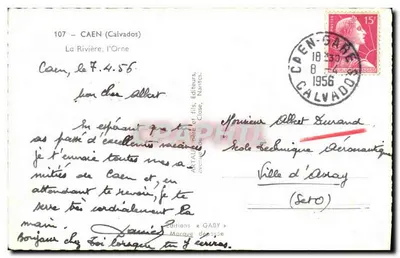 107 - CAEN (Calvados)
La Rivière, l'Orne
Caen, le 7.4.56
mon cher Albert
En espérant que tu
as passé d'excellentes vacances,
je t'envoie toutes mes a
mitiés de Caen et, en
attendant te revoir, je te
serre très cordialement la
main.
Bonjour chez toi lorsque tu y écriras.
Nantes.
"GABY"
Marque déposée
15F
CAEN-GARE
18H30
8 -4
1956
CALVADOS
Monsieur Albert Durand
Ecole Technique Aéronautique
Ville d'Avray
(S et O)